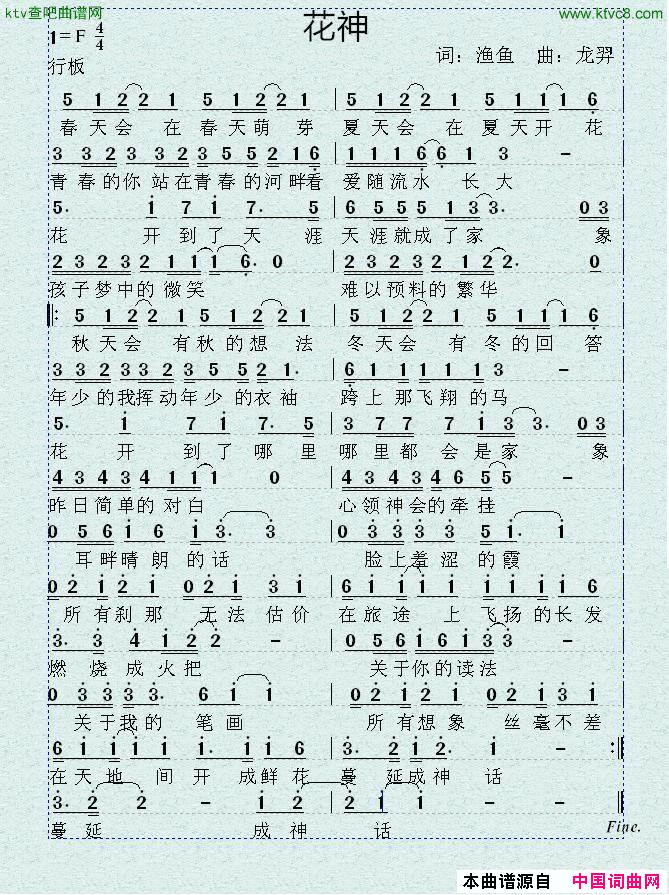 ktv查吧曲谱网
www.ktvc8.com
花神
1=F 4/4
行板
词：渔鱼 曲：龙羿
5 1 2 2 1 5 1 2 2 1 | 5 1 2 2 1 5 1 1 1 6
春天会在春天萌芽 夏天会在夏天开花
3 3 3 2 3 3 2 3 5 5 2 1 6 | 1 1 1 6 6 1 3 -
青春的你站在青春的河畔看 爱随流水长大
5. 1 7 1 7. 5 | 6 5 5 5 1 3 3. 0 3
花开到了天涯 天涯就成了家 象
2 3 2 3 2 1 1 1 6. 0 | 2 3 2 3 2 1 2 2. 0
孩子梦中的微笑 难以预料的繁华
5 1 2 2 1 5 1 2 2 1 | 5 1 2 2 1 5 1 1 1 6
秋天会有秋的想法 冬天会有冬的回答
年少的我挥动年少的衣袖 跨上那飞翔的马
5. 1 7 1 7. 5 | 3 7 7 7 1 3 3. 0 3
花开到了哪里 哪里都会是家 象
4 3 4 3 4 1 1 1 0 | 4 3 4 3 4 6 5 5 -
昨日简单的对白 心领神会的牵挂
0 5 6 1 6 1 3. 3 | 0 3 3 3 3 5. 1
耳畔晴朗的话 脸上羞涩的霞
0 2 1 2 1 0 2 1 3 2 | 6 1 1 1 1 1 1 1 6
所有刹那无法估价 在旅途上飞扬的长发
3. 3 4 1 2 2 - | 0 5 6 1 6 1 3 3 -
燃烧成火把 关于你的读法
0 3 3 3 3. 6 1 1 | 0 2 1 2 1 0 2 1 3 2
关于我的笔画 所有想象丝毫不差
6 1 1 1 1 1 1 1 6 | 3. 2 2 1 1 -
在天地间开成鲜花 蔓延成神话
3. 2 2 - 1 2 | 2 1 1 -
蔓延成神话
Fine.
本曲谱源自 中国词曲网